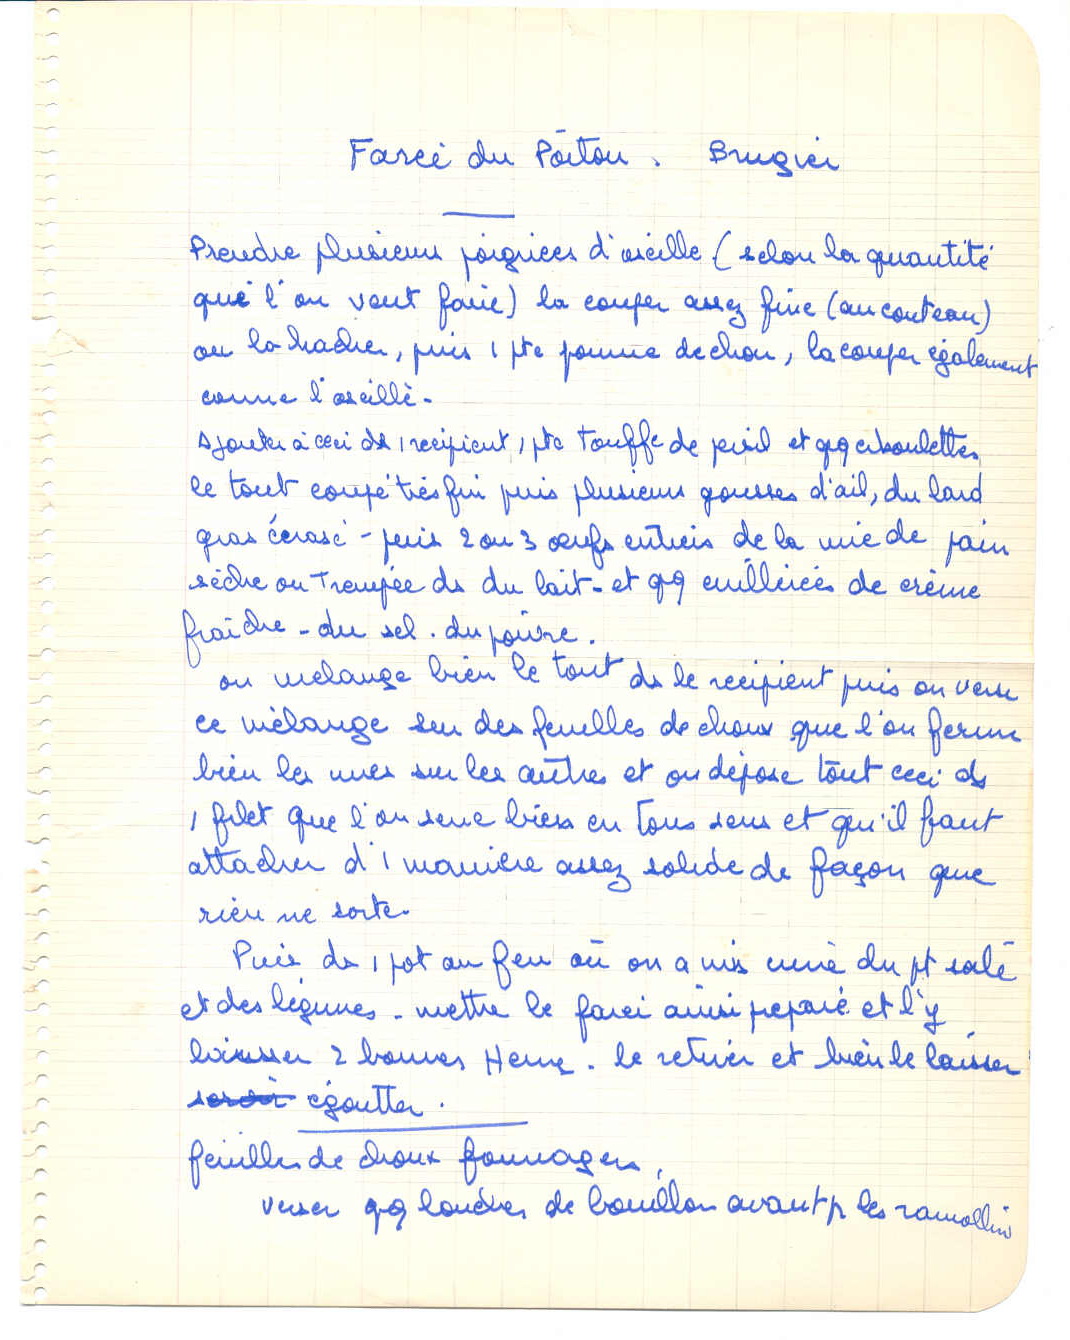 Farci du Poitou. Brugier
Prendre plusieurs poignées d'oseille (selon la quantité
que l'on veut faire) la couper assez fine (au couteau)
ou la hacher, puis 1 pte pomme de chou, la couper également
comme l'oseille.
Ajouter à ceci ds 1 recipient, 1 pte Touffe de persil et qq ciboulettes
le tout coupé très fin puis plusieurs gousses d'ail, du lard
gras écrasé - puis 2 ou 3 oeufs entiers de la mie de pain
sèche ou Trempée ds du lait - et qq cuillerées de crème
fraîche - du sel. du poivre.
on mélange bien le tout ds le recipient puis on verse
ce mélange sur des feuilles de choux que l'on ferme
bien les unes sur les autres et on dépose tout ceci ds
1 filet que l'on serre bien en Tous sens et qu'il faut
attacher d'1 manière assez solide de façon que
rien ne sorte.
Puis ds 1 pot au feu où on a mis cuire du pt salé
et des légumes - mettre le farci ainsi preparé et l'y
laisser 2 bonnes Heures. le retirer et bien le laisser
égoutter.
feuilles de choux fourragers,
verser qq louches de bouillon avant pr les ramollir